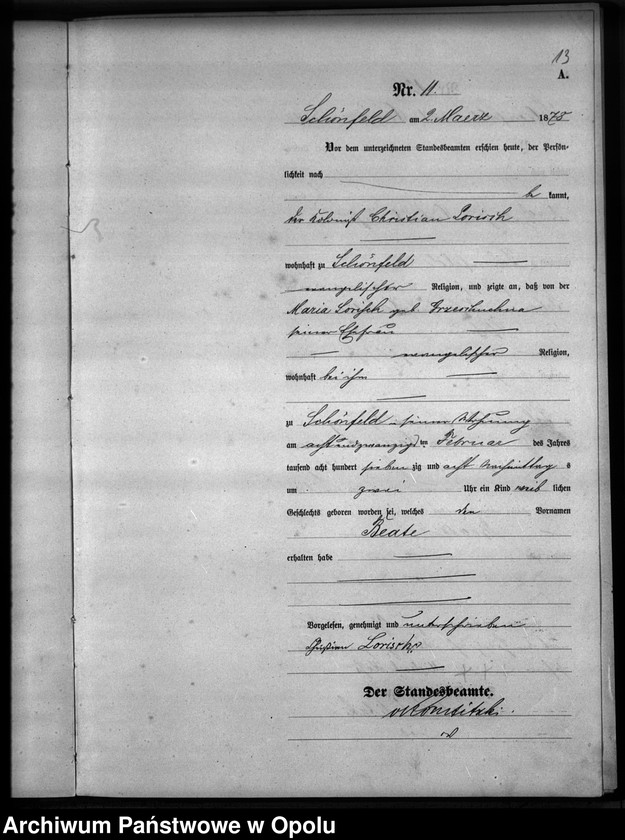 13
A.
Nr. 11.
Schönfeld am 2. Maerz 1875
Vor dem unterzeichneten Standesbeamten erschien heute, der Persön-
lichkeit nach
be kannt,
der Kolonist Christian Lorisch
wohnhaft zu Schönfeld
evangelischer Religion, und zeigte an, daß von der
Maria Lorisch geb
seiner Ehefrau
evangelischer Religion,
wohnhaft bei ihm
zu Schönfeld in seiner Wohnung
am achtundzwanzigten Februar des Jahres
tausend acht hundert sieben zig und acht Nachmittag s
um zwei Uhr ein Kind weib lichen
Geschlechts geboren worden sei, welches den Vornamen
Beate
erhalten habe
Vorgelesen, genehmigt und unterschrieben
Christian Lorisch
Der Standesbeamte.
Archiwum Państwowe w Opolu